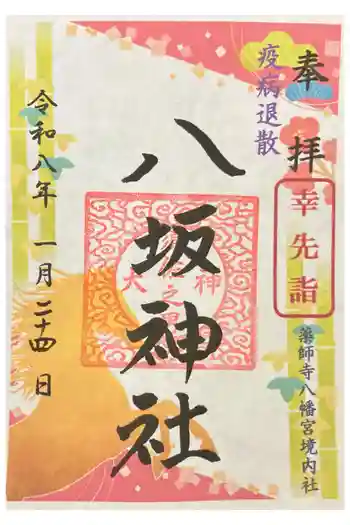 奉拝
疫病退散
幸先詣
薬師寺八幡宮境内社
八坂神社
令和八年 一月二十四日